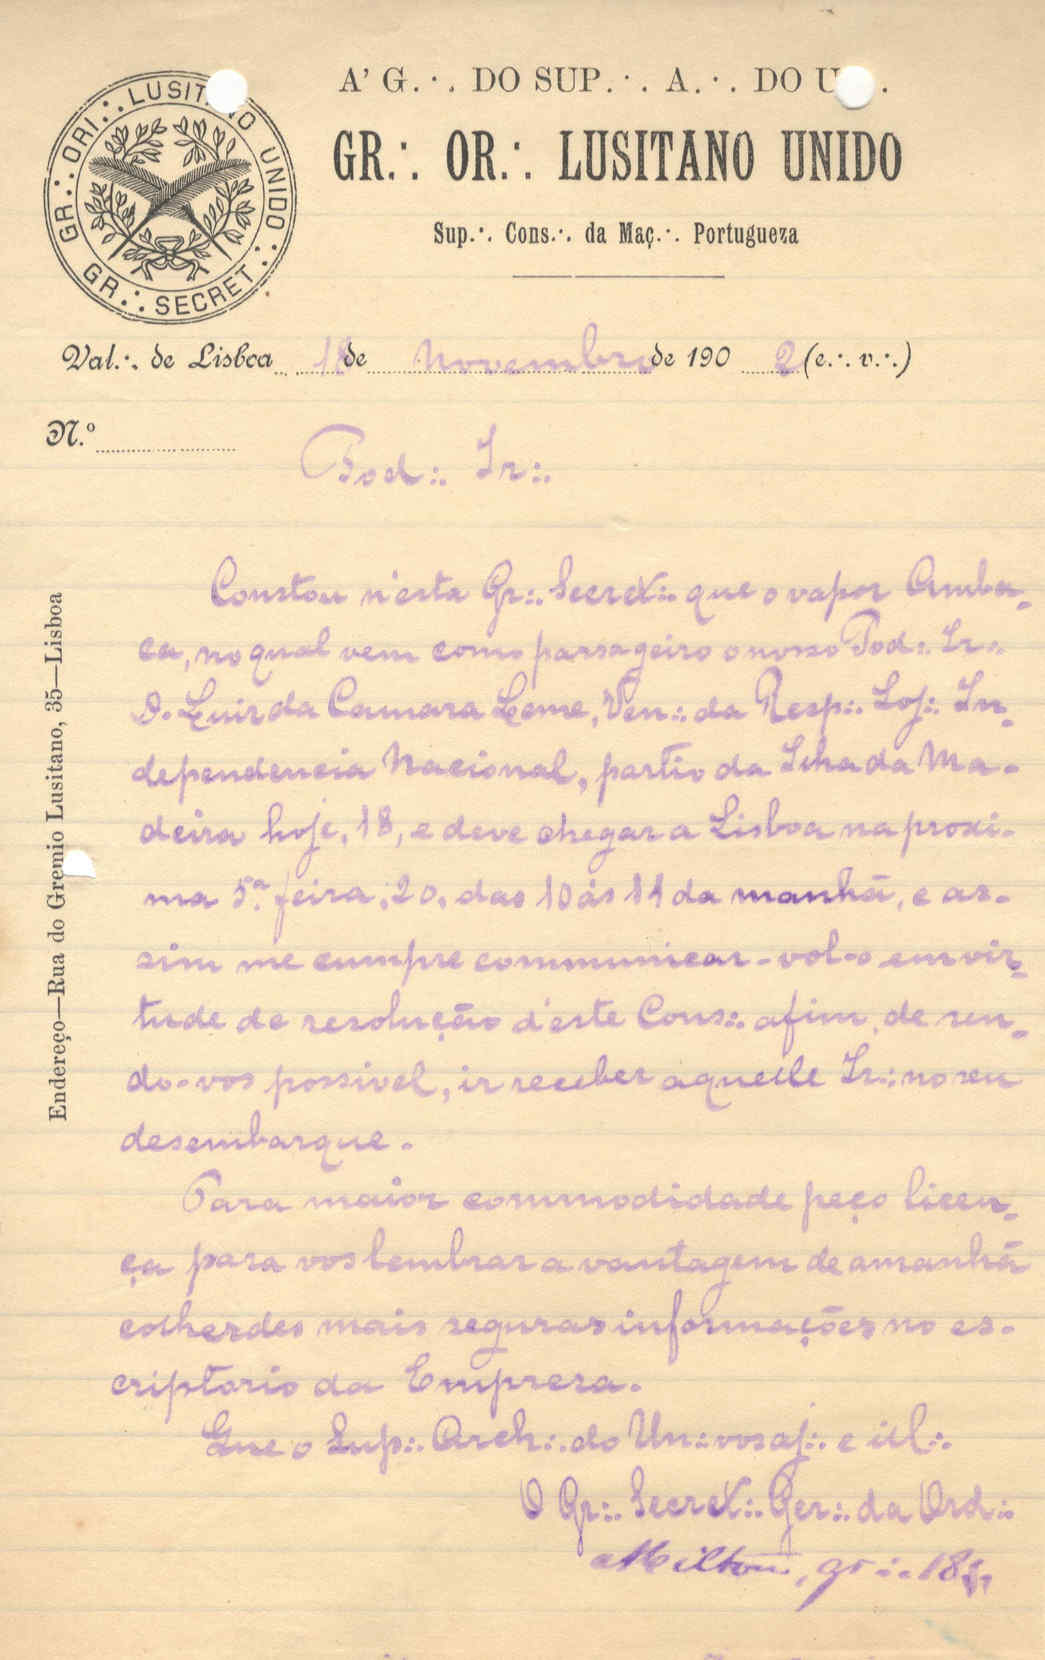 GR.∴ ORI.∴ LUSITANO UNIDO.∴
GR.∴ SECRET.∴
A' G.∴ DO SUP.∴ A.∴ DO U .
GR.∴ OR.∴ LUSITANO UNIDO
Sup.∴ Cons.∴ da Maç.∴ Portugueza
Val.∴ de Lisboa 18 de Novembro de 190 2 (e.∴ v.∴)
N.º
Pod∴ Ir∴
Constou n'esta Gr∴ Secret∴ que o vapor Amba-
ca, no qual vem como passageiro o nosso Pod∴ Ir∴
D. Luiz da Camara Leme, Ven∴ da Resp∴ Loj∴ In-
dependencia Nacional, partio da Ilha da Ma-
deira hoje, 18, e deve chegar a Lisboa na proxi-
ma 5.ª feira, 20, das 10 ás 11 da manhã, e as-
sim me cumpre communicar-vol-o em vir-
tude de resolução d'este Cons∴ afim, de sen-
do-vos possivel, ir receber aquelle Ir∴ no seu
desembarque.
Para maior commodidade peço licen-
ça para vos lembrar a vantagem de amanhã
colherdes mais seguras informações no es-
criptorio da Empreza.
Que o Sup∴ Arch∴ do Un∴ vos aj∴ e ill∴
O Gr∴ Secret∴ Ger∴ da Ord∴
Milton, gr∴ 18
Endereço—Rua do Gremio Lusitano, 35—Lisboa